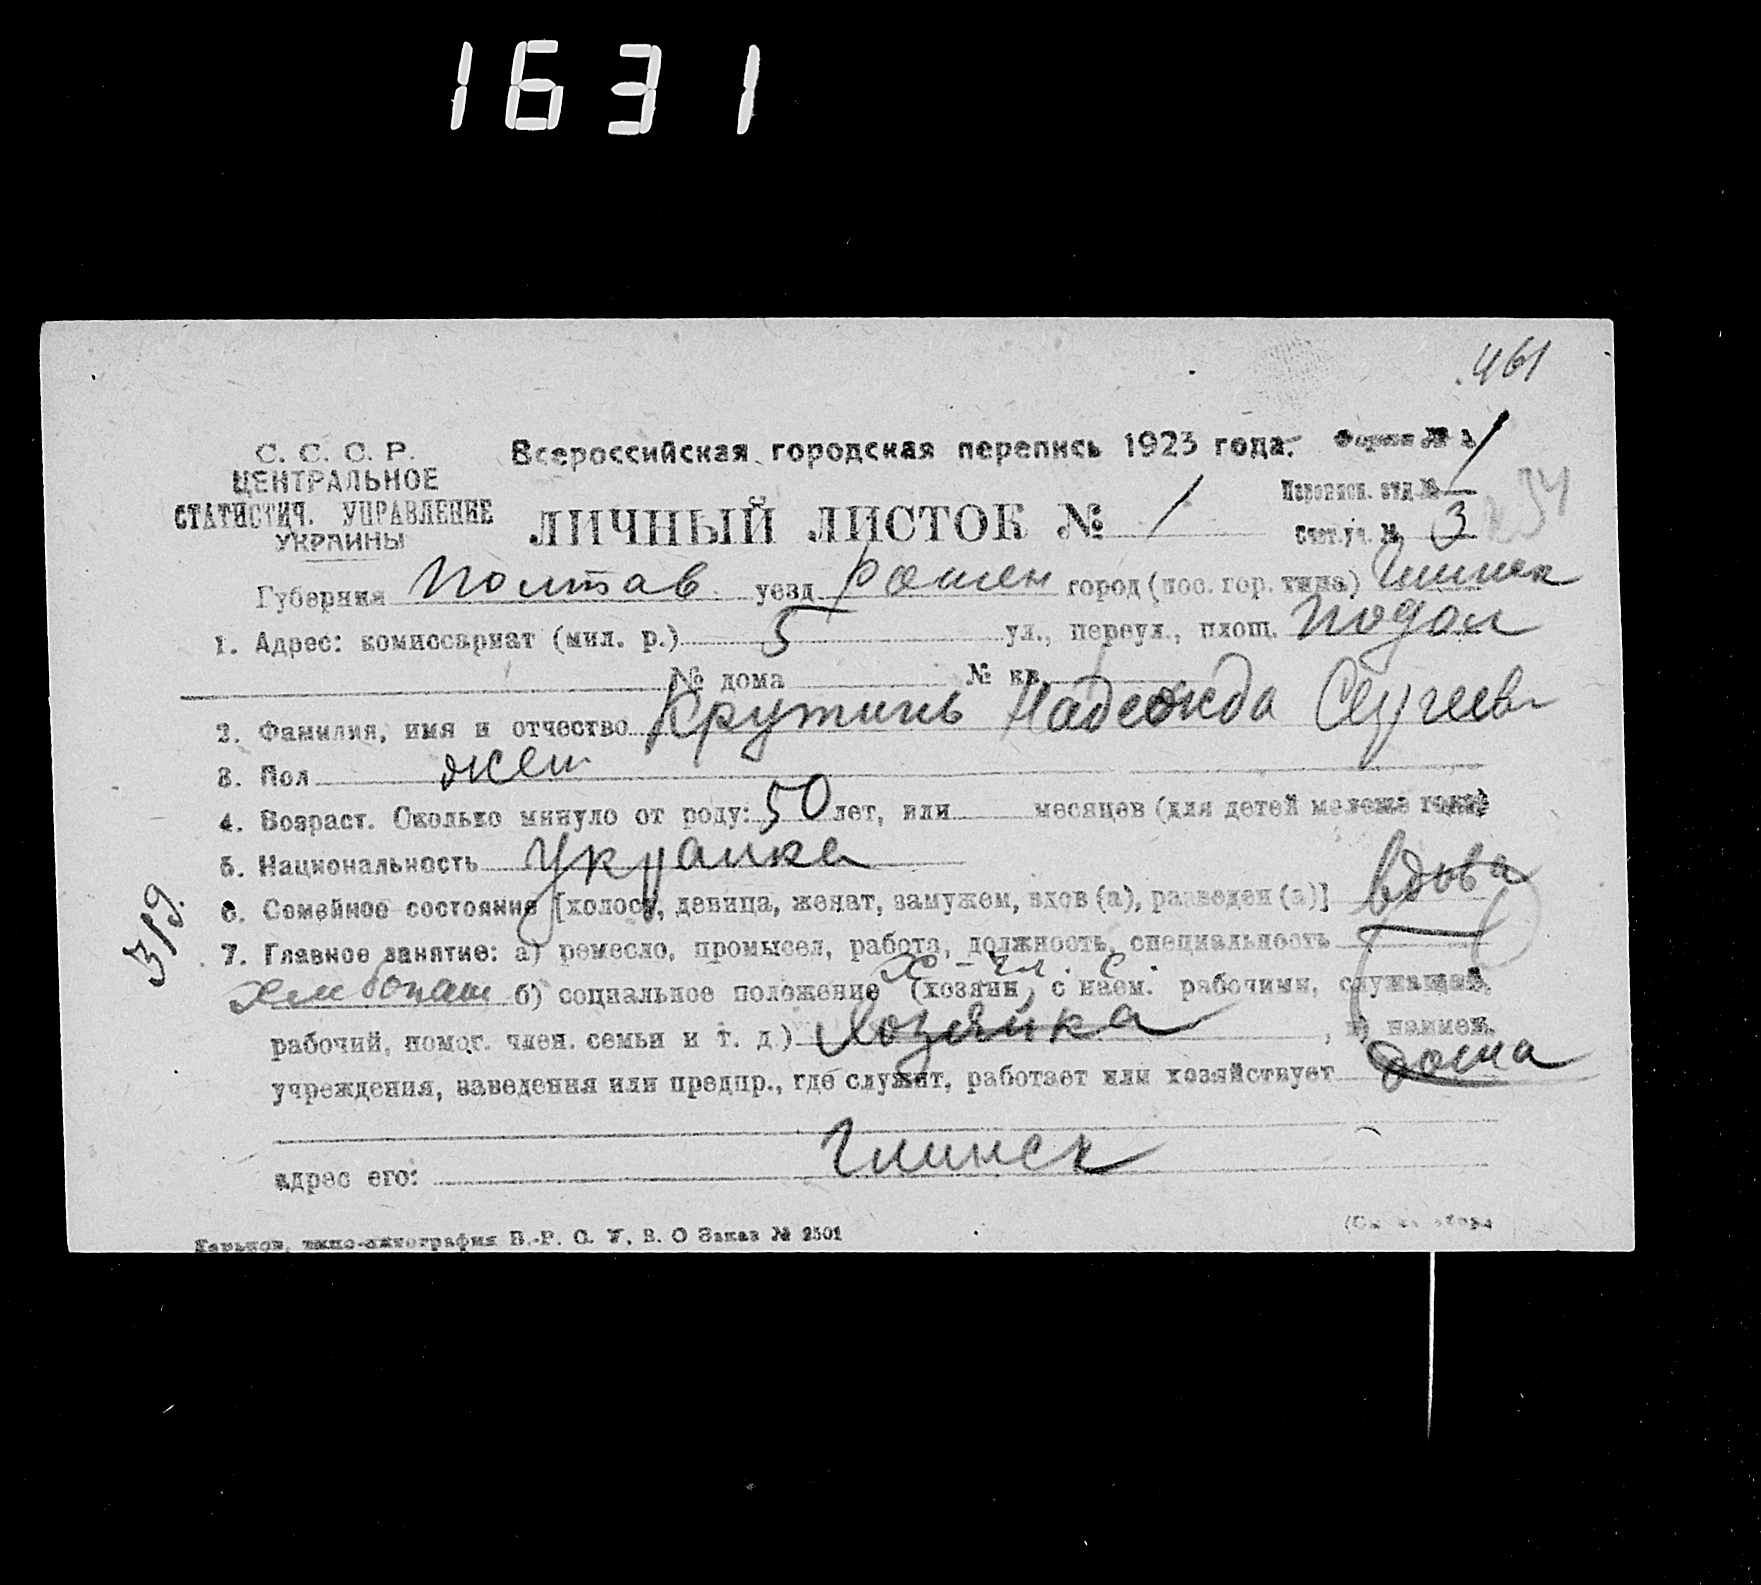 1631
461
С. С. С. Р.
ЦЕНТРАЛЬНОЕ
СТАТИСТИЧ. УПРАВЛЕНИЕ
УКРАИНЫ
Всероссийская городская перепись 1923 года.
Форма № 1
ЛИЧНЫЙ ЛИСТОК № 1
Переписн. отд. № 1
Счет. уч. № 3
34
Губерния Полтав. уезд Ромен город (пос. гор. типа) Глинск
1. Адрес: комиссариат (мил. р.) 5 ул., переул., площ. Подол
№ дома № кв.
2. Фамилия, имя и отчество Крутинь Надежда Сергеев
3. Пол жен.
4. Возраст. Сколько минуло от роду: 50 лет, или месяцев (для детей моложе года)
5. Национальность Украинка
6. Семейное состояние [холост, девица, женат, замужем, вдов (а), разведен (а)] вдова
319.
7. Главное занятие: а) ремесло, промысел, работа, должность, специальность
х – чл. с.
хлебопаш б) социальное положение (хозяин, с наем. рабочими, служащий,
рабочий, помог. член. семьи и т. д.) Хозяйка, в) наимен.
учреждения, заведения или предпр., где служит, работает или хозяйствует дома
адрес его: Глинск
Харьков, типо-литография В.-Р. С. У. В. О Заказ № 2501